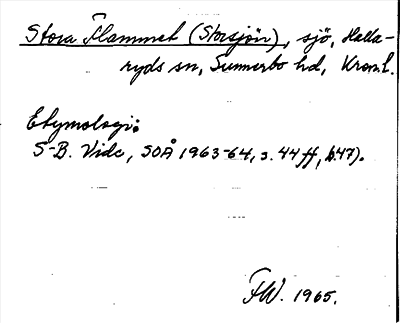 Stora Flammet (Storsjön), sjö, Halla-
ryds sn, Sunnerbo hd, Kron.l.
Etymologi:
S-B. Vide, SOÅ 1963-64, s. 44 ff, b.47).
FW. 1965.